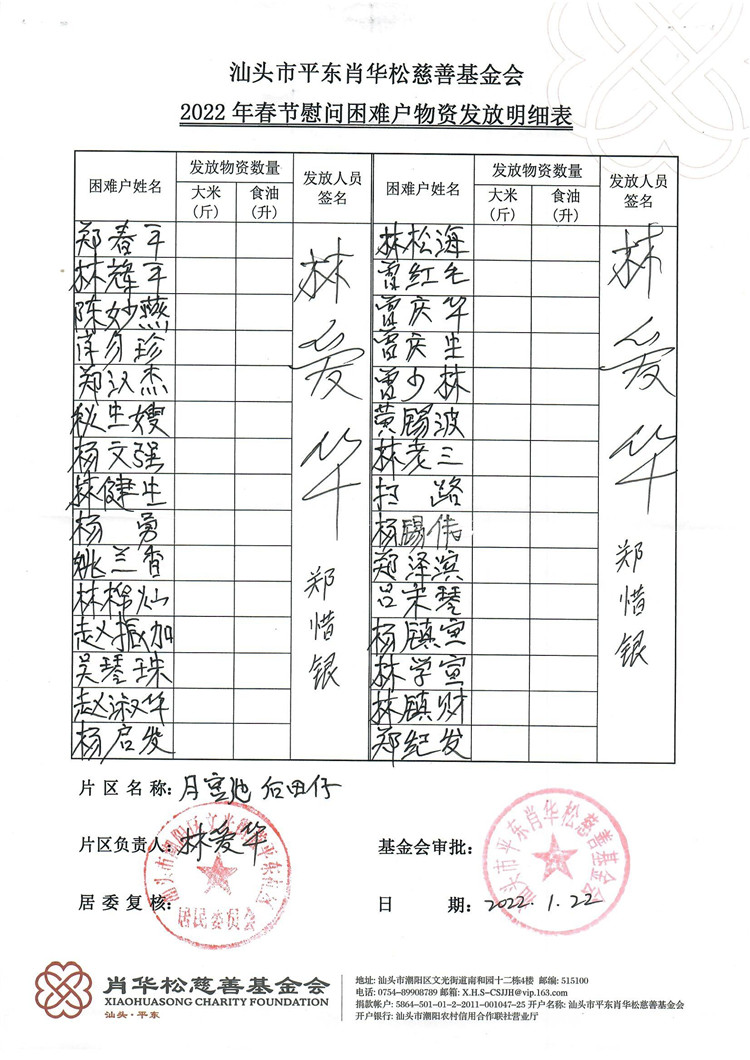 汕头市平东肖华松慈善基金会
2022年春节慰问困难户物资发放明细表
困难户姓名 发放物资数量 发放人员签名 困难户姓名 发放物资数量 发放人员签名
大米(斤) 食油(升) 大米(斤) 食油(升)
郑春平 林松海
林辉平 曾红毛
陈妙燕 曾庆华
肖乃珍 曾庆生
郑汉杰 曾少林
秘生嫂 黄锡波
杨文强 林老三
林健生 路
杨勇 杨锡伟
姚兰香 郑泽滨
林棉灿 吕宋琴
赵振加 杨镇宣
吴琴珠 林学宣
赵淑华 林镇财
杨启发 郑纪发
林爱华 林爱华
郑惜银 郑惜银
片区名称: 月宫池 后田仔
片区负责人: 林爱华 基金会审批:
居委复核: 日 期: 2022.1.22
居民委员会
汕头市平东肖华松慈善基金会
肖华松慈善基金会
XIAOHUASONG CHARITY FOUNDATION
汕头·平东
地址: 汕头市潮阳区文光街道南和园十二栋4楼 邮编: 515100
电话: 0754-89908789 邮箱: X.H.S-CSJJH@vip.163.com
捐款帐户: 5864-501-01-2-2011-001047-25 开户名称: 汕头市平东肖华松慈善基金会
开户银行: 汕头市潮阳农村信用合作联社营业厅